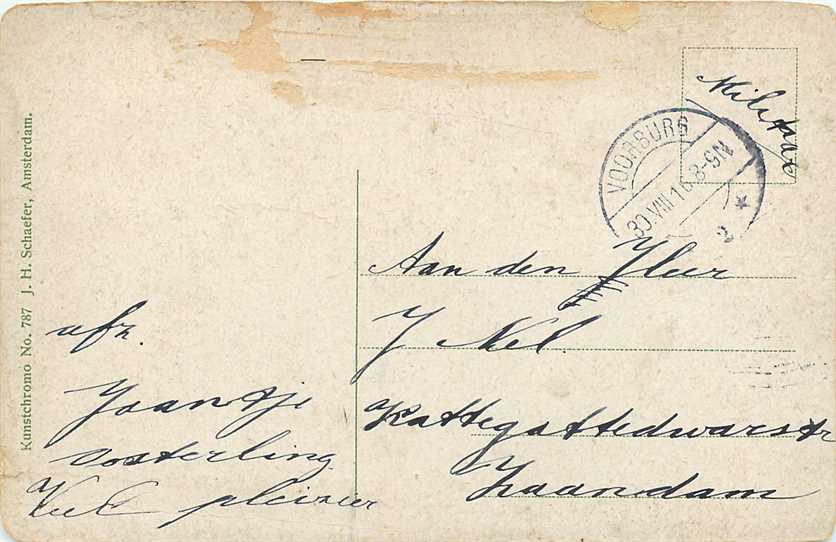 Kunstchromo No. 787 J. H. Schaefer, Amsterdam.
Militair
VOORBURG
30.VIII.16.8-9N
2
Aan den Heer
J Nel
Kattegattedwarsstr
Zaandam
afz.
Jaantje
Oosterling
Veel pleizier